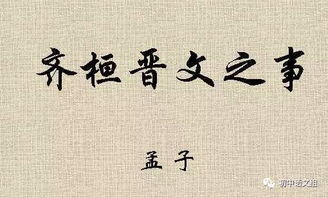 齐桓晋文之事
孟子
初中语文组